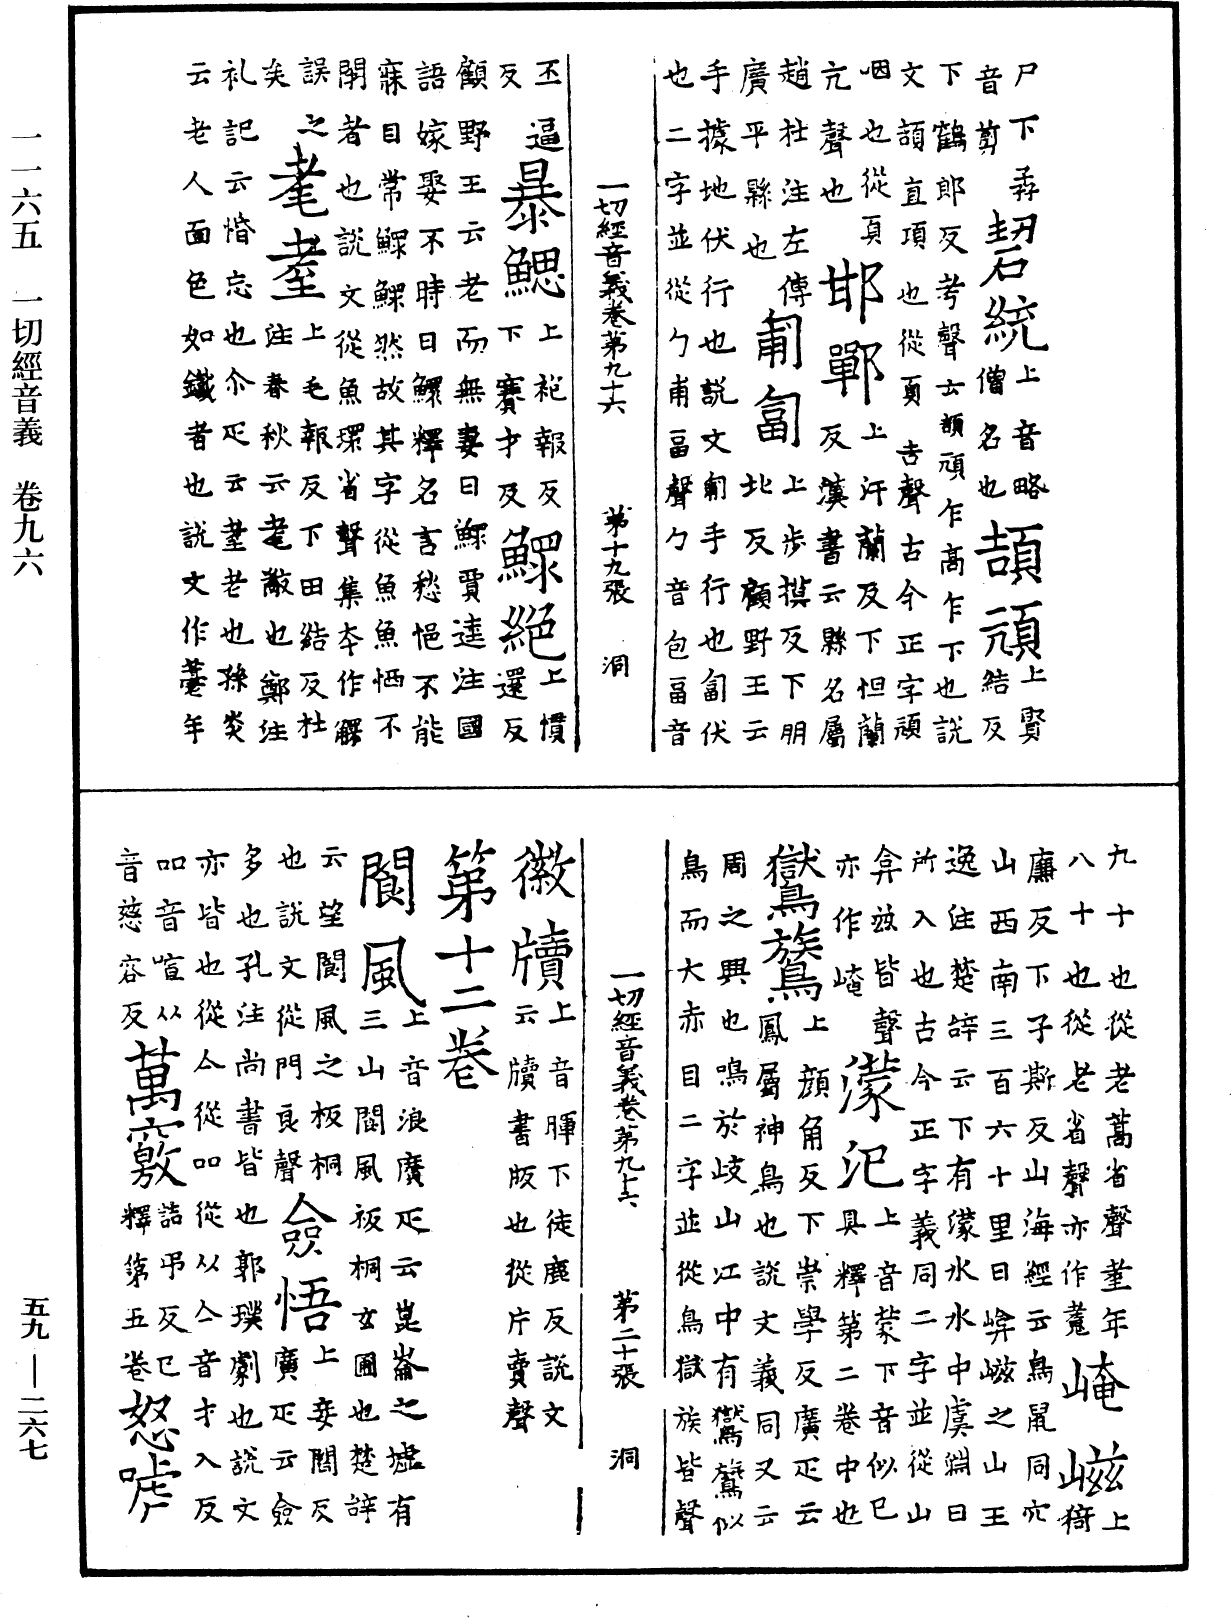 一一六五　一切經音義　卷九六
尸下彞
音剪　䂮統上音略
僧名也　頡頏上賢
結反
下鶴郎反考聲云頡頏乍高乍下也說
文頡直項也從頁吉聲古今正字頏
咽也從頁
亢聲也　邯鄲上汗蘭反下怛蘭
反漢書云縣名屬
趙杜注左傳
廣平縣也　匍匐上步摸反下朋
北反顧野王云
手據地伏行也說文匍手行也匐伏
也二字並從勹甫畐聲勹音包畐音
一切經音義卷第九十六　第十九張　洞
丕逼
反　暴鰓上袍報反
下賽才反　鰥絕上慣
還反
顧野王云老而無妻曰鰥賈逵注國
語嫁娶不時曰鰥釋名言愁悒不能
寐目常鰥鰥然故其字從魚魚恓不
閉者也說文從魚環省聲集本作鱞
誤之
矣　耄耋上毛報反下田結反杜
注春秋云耄亂也鄭注
礼記云惛忘也尒疋云耋老也孫炎
云老人面色如鐵者也說文作薹年
九十也從老蒿省聲耋年
八十也從老省聲亦作耊　崦嵫上
猗
廉反下子斯反山海經云鳥鼠同穴
山西南三百六十里曰崦嵫之山王
逸注楚辝云下有濛水水中虞淵日
所入也古今正字義同二字並從山
弇玆皆聲
亦作崦　濛汜上音蒙下音似已
具釋第二卷中也
鸑鷟上顏角反下崇學反廣疋云
鳳屬神鳥也說文義同又云
周之興也鳴於歧山江中有鸑鷟似
鳥而大赤目二字並從鳥獄族皆聲
一切經音義卷第九十六　第二十張　洞
徽牘上音暉下徒鹿反說文
云牘書版也從片賣聲
第十二卷
閬風上音浪廣疋云崑崙之墟有
三山閬風板桐玄圃也楚辝
云望閬風之板桐
也說文從門良聲　僉悟上妾閻反
廣疋云僉
多也孔注尚書皆也郭璞劇也說文
亦皆也從亼從吅從从亼音才入反
吅音喧从
音慈容反　萬竅詰弔反已
釋第五卷　怒嘑
五九—二六七